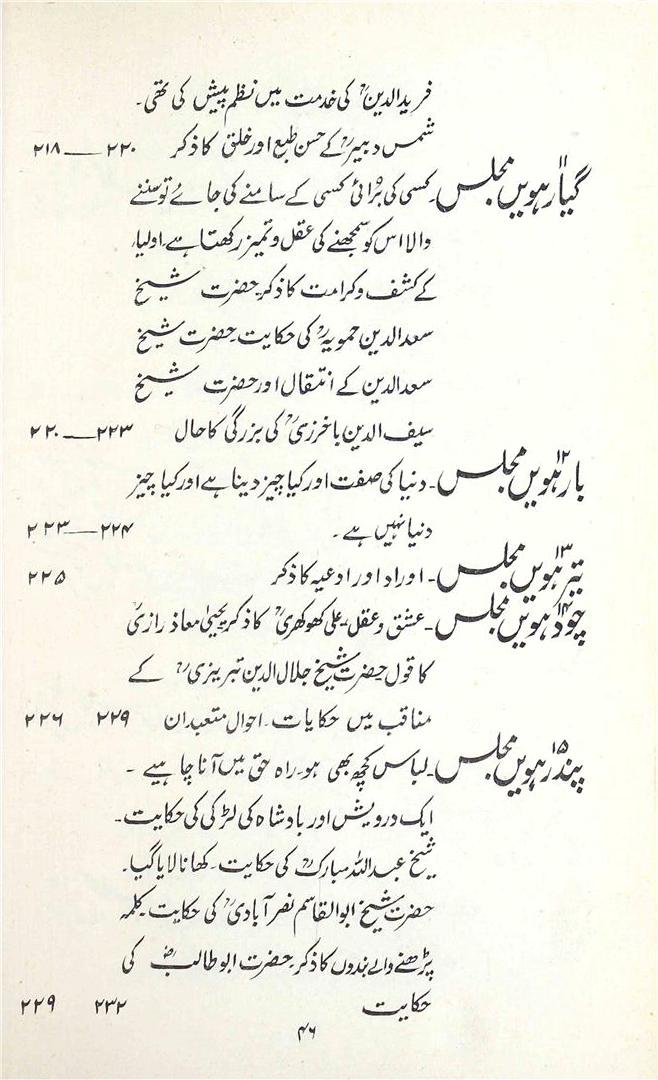 فریدالدینؒ کی خدمت میں نظم پیش کی تھی۔
شمس دبیرؒ کے حسن طبع اور خلق کا ذکر ۲۲۰—۲۱۸
گیارہویں۱۱ مجلس۔ کسی کی بُرائی کسی کے سامنے کی جائے تو سننے
والا اس کو سمجھنے کی عقل و تمیز رکھتا ہے۔ اولیاء
کے کشف و کرامت کا ذکر۔ حضرت شیخ
سعدالدین حمویہؒ کی حکایت۔ حضرت شیخ
سعدالدین کے انتقال اور حضرت شیخ
سیف الدین باخرزیؒ کی بزرگی کا حال ۲۲۳—۲۲۰
بارہویں۱۲ مجلس۔ دنیا کی صفت اور کیا چیز دینا ہے اور کیا چیز
دنیا نہیں ہے۔ ۲۲۴—۲۲۳
تیرہویں۱۳ مجلس۔ اوراد اور ادعیہ کا ذکر ۲۲۵
چودہویں۱۴ مجلس۔ عشق و عقل۔ علی کھوکھریؒ کا ذکر۔ یحییٰ معاذ رازیؒ
کا قول۔ حضرت شیخ جلال الدین تبریزیؒ کے
مناقب میں حکایات۔ احوال متعبدان ۲۲۹ ۲۲۶
پندرہویں۱۵ مجلس۔ لباس کچھ بھی ہو۔ راہ حق میں آنا چاہیے۔
ایک درویش اور بادشاہ کی لڑکی کی حکایت۔
شیخ عبداللہ مبارکؒ کی حکایت۔ کھانا لایا گیا۔
حضرت شیخ ابوالقاسم نصرآبادیؒ کی حکایت۔ کلمہ
پڑھنے والے بندوں کا ذکر۔ حضرت ابوطالبؓ کی
حکایت ۲۳۲ ۲۲۹
۴۶